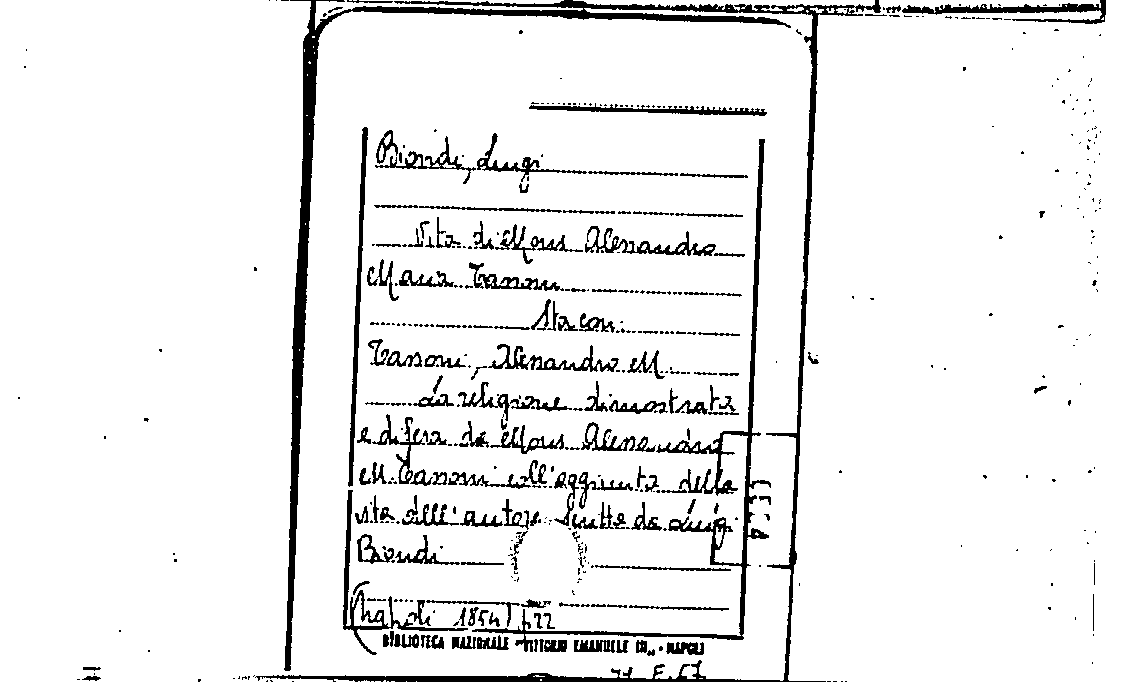 Biondi, Luigi
Vita di Mons Alessandro
Maria Tassoni
Sta con:
Tassoni, Alessandro M.
La religione dimostrata
e difesa da Mons Alessandro
M. Tassoni coll'aggiunta della
vita dell'autore scritta da Luigi
Biondi
(Napoli 1854) p.22
BIBLIOTECA NAZIONALE "VITTORIO EMANUELE III" - NAPOLI